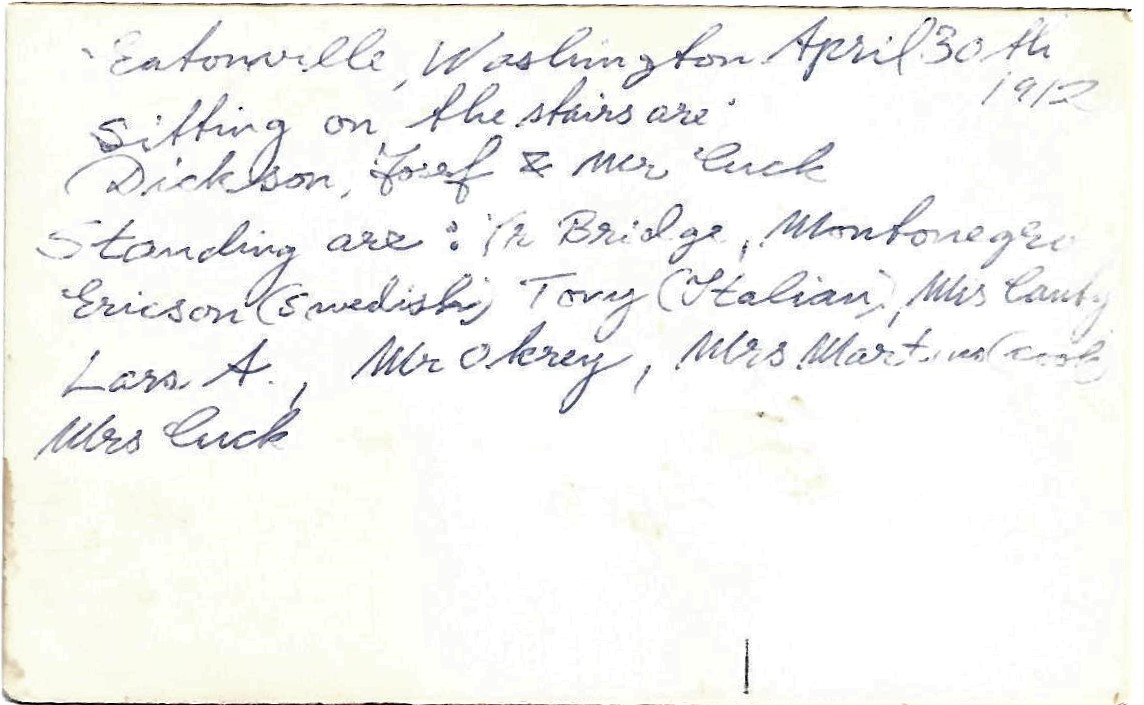 Eatonville, Washington April 30th
1912
Sitting on the stairs are
Dickson, Josef & Mr Cuck
Standing are: Bridge, Montonegro
Ericson (Swedish) Tony (Italian), Mrs
Lars A., Mr Okrey, Mrs Martins (cook)
Mrs Cuck